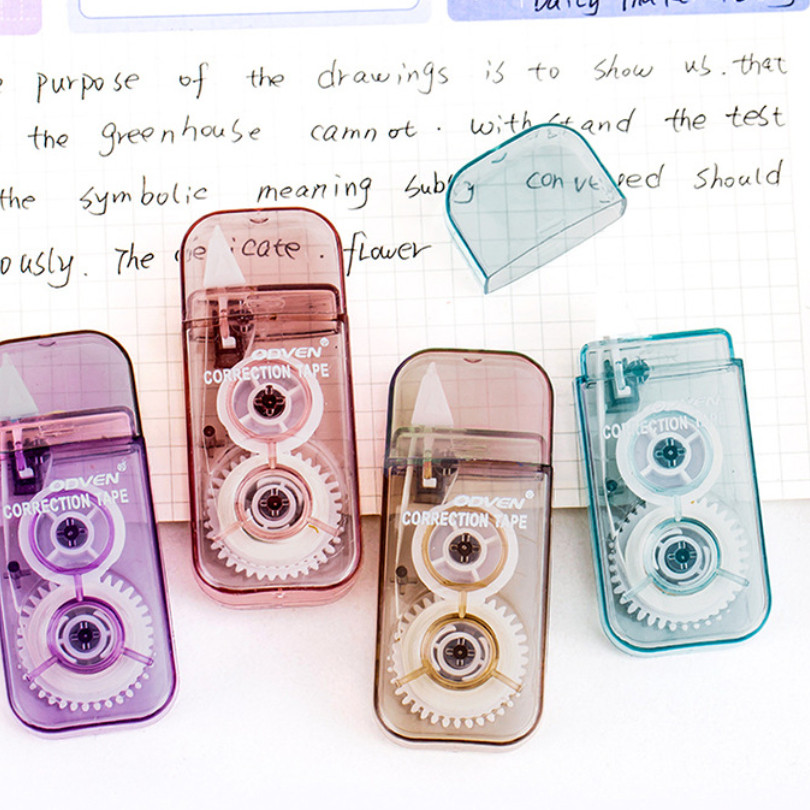 purpose of the drawings is to show us. that
the greenhouse camnot. withstand the test
the symbolic meaning conveyed should
ously. The delicate. flower
ODVEN®
CORRECTION TAPE
ODVEN®
CORRECTION TAPE
ODVEN®
CORRECTION TAPE
CORRECTION TAPE